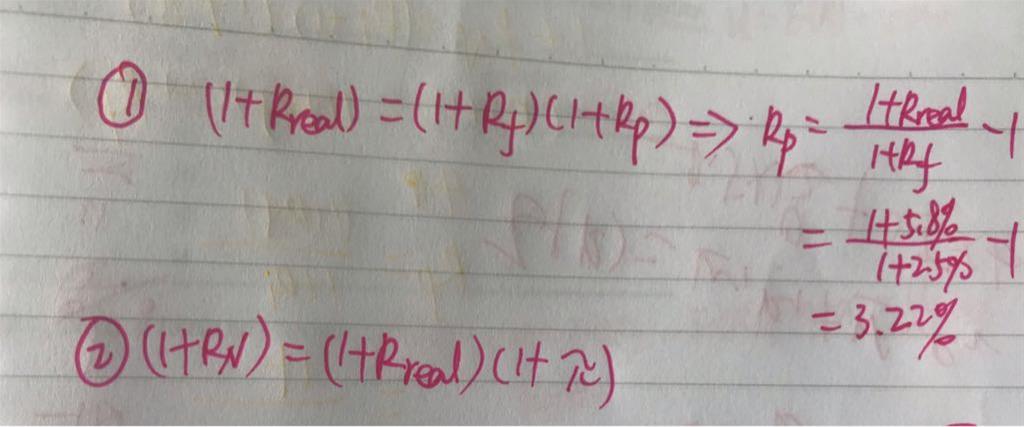 ① (1+Rreal) = (1+Rf)(1+Rp) => Rp = (1+Rreal)/(1+Rf) - 1
= (1+5.8%)/(1+2.5%) - 1
= 3.22%
② (1+RN) = (1+Rreal)(1+π)